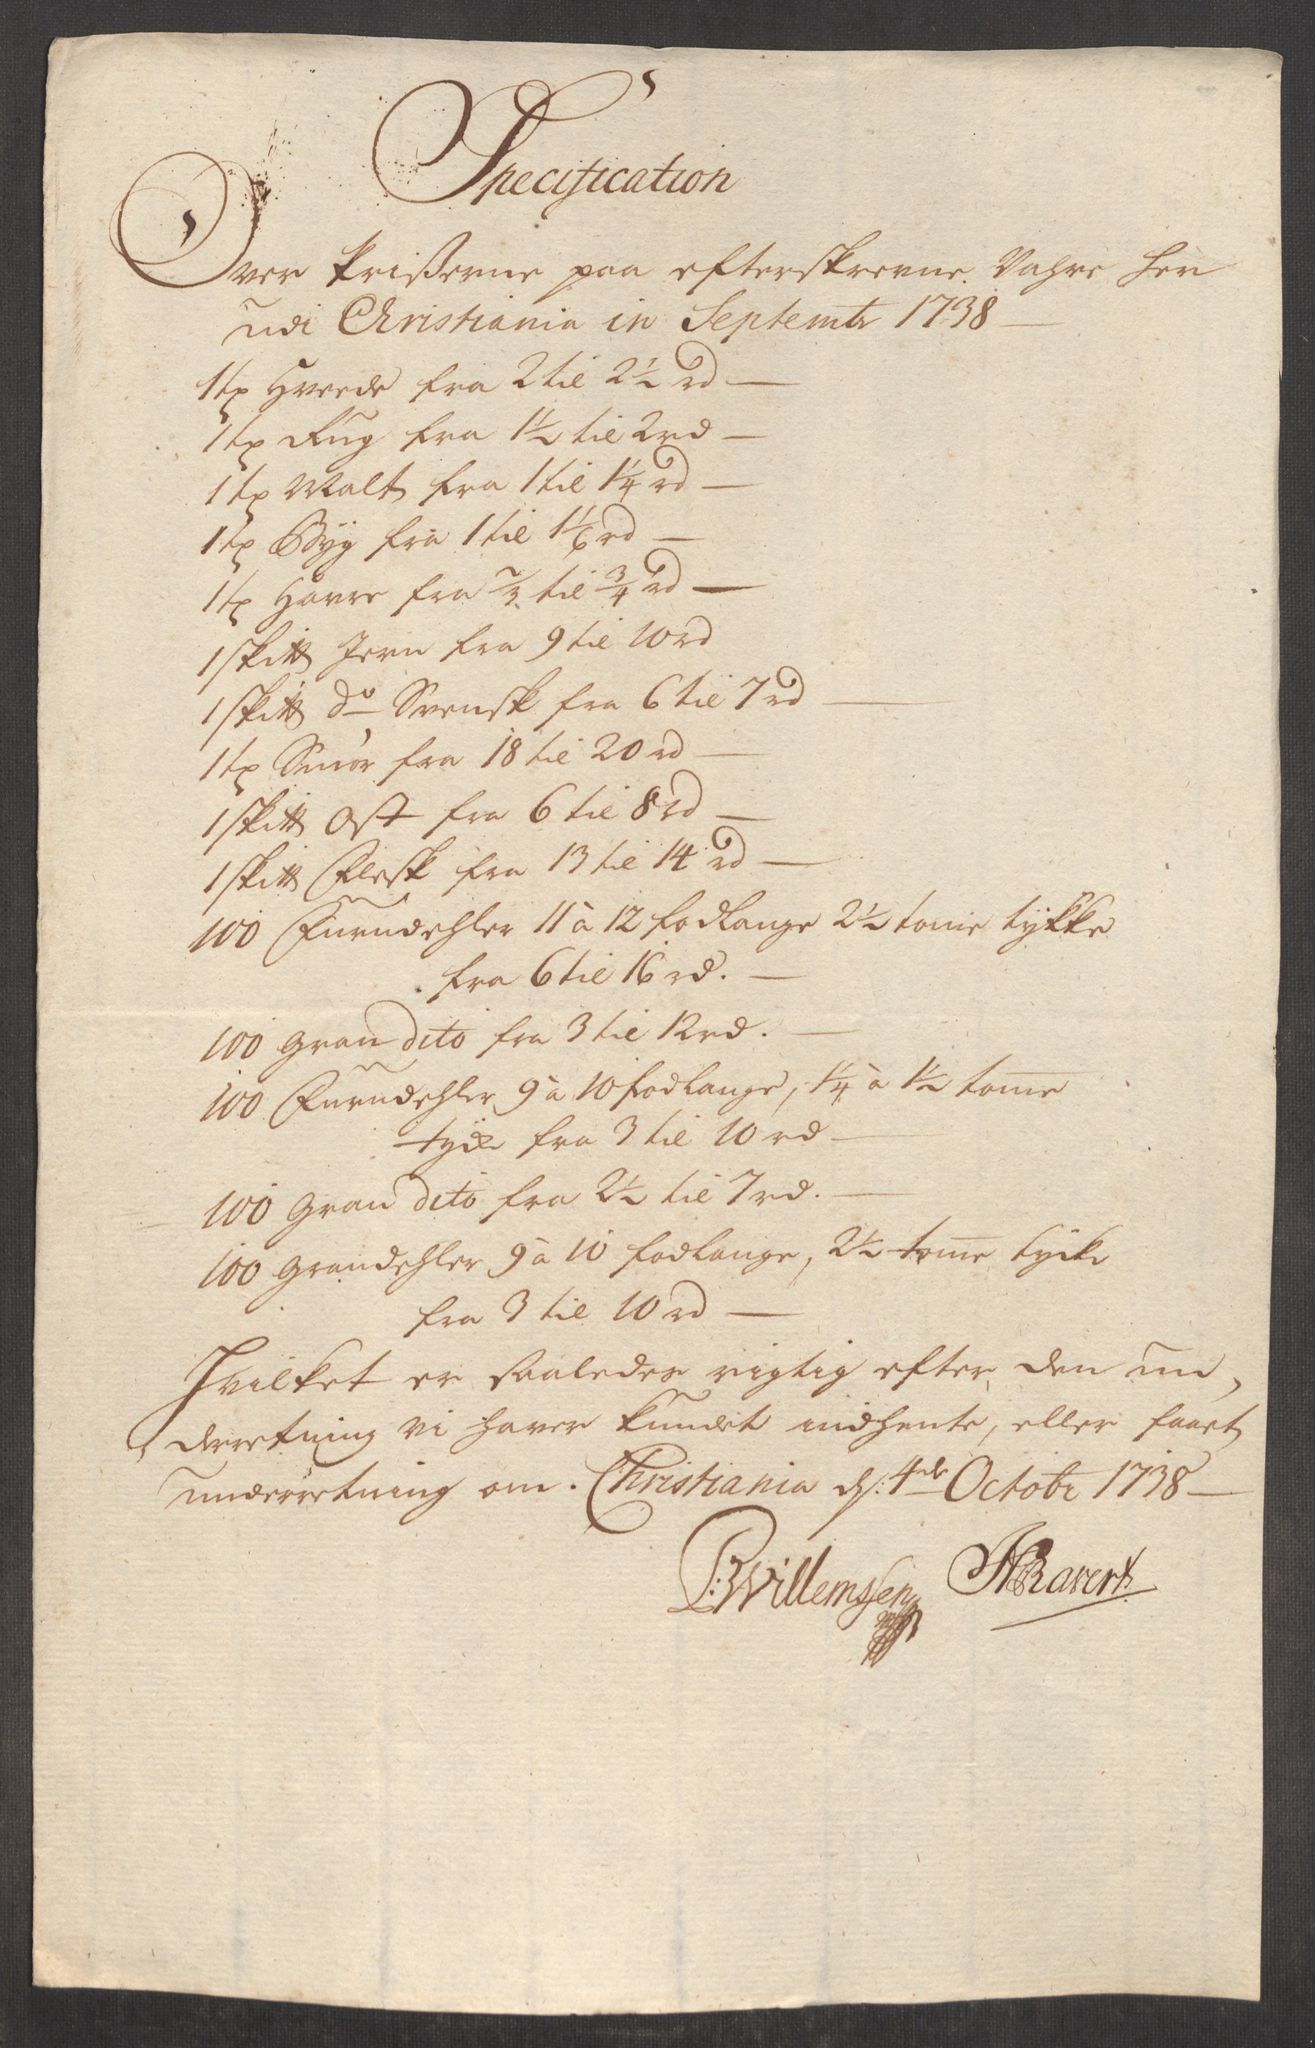 Specification
Over Prißerne paa efterskrevne Vahre her
udi Christiania in Septembr 1738
1 tø Hvede fra 2 til 2½ rd
1 tø Rug fra 1½ til 2 rd
1 tø Malt fra 1 til 1¼ rd
1 tø Byg fra 1 til 1⅙ rd
1 tø Havre fra ⅔ til ¾ rd
1 skitt Jern fra 9 til 10 rd
1 skitt do Svensk fra 6 til 7 rd
1 tø Smør fra 18 til 20 rd
1 skitt Ost fra 6 til 8 rd
1 skitt Flesk fra 13 til 14 rd
100 Furudehler 11 à 12 fodlange 2½ tome tykke
fra 6 til 16 rd.
100 Gran dito fra 3 til 12 rd.
100 Furudehler 9 à 10 fodlange, 1¼ à 1½ tome
tyck fra 3 til 10 rd
100 Gran dito fra 2½ til 7 rd.
100 Grandehler 9 à 10 fodlange, 2½ tome tycke
fra 3 til 10 rd
Hvilket er saaledes rigtig efter den un,
derretning vi haver kundet indhente, eller faaet
underretning om. Christiania d: 4de Octobr 1738
B: Willemssen HBavert